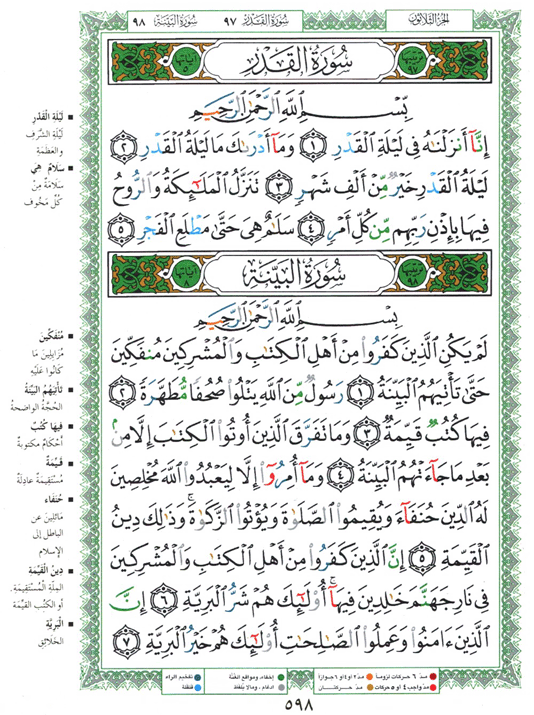 الجُزْءُ الثَّلَاثُونَ
سُورَةُ القَدْرِ ٩٧
سُورَةُ البَيِّنَةِ ٩٨
ترتيبها ٩٧
سُورَةُ القَدْرِ
آياتها ٥
بِسْمِ اللَّهِ الرَّحْمَٰنِ الرَّحِيمِ
إِنَّآ أَنزَلْنَٰهُ فِى لَيْلَةِ ٱلْقَدْرِ ١ وَمَآ أَدْرَىٰكَ مَا لَيْلَةُ ٱلْقَدْرِ ٢
لَيْلَةُ ٱلْقَدْرِ خَيْرٌ مِّنْ أَلْفِ شَهْرٍ ٣ تَنَزَّلُ ٱلْمَلَٰٓئِكَةُ وَٱلرُّوحُ
فِيهَا بِإِذْنِ رَبِّهِم مِّن كُلِّ أَمْرٍ ٤ سَلَٰمٌ هِىَ حَتَّىٰ مَطْلَعِ ٱلْفَجْرِ ٥
ترتيبها ٩٨
سُورَةُ البَيِّنَةِ
آياتها ٨
بِسْمِ اللَّهِ الرَّحْمَٰنِ الرَّحِيمِ
لَمْ يَكُنِ ٱلَّذِينَ كَفَرُوا۟ مِنْ أَهْلِ ٱلْكِتَٰبِ وَٱلْمُشْرِكِينَ مُنفَكِّينَ
حَتَّىٰ تَأْتِيَهُمُ ٱلْبَيِّنَةُ ١ رَسُولٌ مِّنَ ٱللَّهِ يَتْلُوا۟ صُحُفًا مُّطَهَّرَةً ٢
فِيهَا كُتُبٌ قَيِّمَةٌ ٣ وَمَا تَفَرَّقَ ٱلَّذِينَ أُوتُوا۟ ٱلْكِتَٰبَ إِلَّا مِنۢ
بَعْدِ مَا جَآءَتْهُمُ ٱلْبَيِّنَةُ ٤ وَمَآ أُمِرُوٓا۟ إِلَّا لِيَعْبُدُوا۟ ٱللَّهَ مُخْلِصِينَ
لَهُ ٱلدِّينَ حُنَفَآءَ وَيُقِيمُوا۟ ٱلصَّلَوٰةَ وَيُؤْتُوا۟ ٱلزَّكَوٰةَ ۚ وَذَٰلِكَ دِينُ
ٱلْقَيِّمَةِ ٥ إِنَّ ٱلَّذِينَ كَفَرُوا۟ مِنْ أَهْلِ ٱلْكِتَٰبِ وَٱلْمُشْرِكِينَ
فِى نَارِ جَهَنَّمَ خَٰلِدِينَ فِيهَآ ۚ أُو۟لَٰٓئِكَ هُمْ شَرُّ ٱلْبَرِيَّةِ ٦ إِنَّ
ٱلَّذِينَ ءَامَنُوا۟ وَعَمِلُوا۟ ٱلصَّٰلِحَٰتِ أُو۟لَٰٓئِكَ هُمْ خَيْرُ ٱلْبَرِيَّةِ ٧
لَيْلَةِ الْقَدْرِ
لَيْلَةِ الشَّرَفِ
والعَظَمَةِ
سَلَامٌ هِيَ
سَلَامَةٌ مِنْ
كُلِّ مَخُوفٍ
مُنْفَكِّينَ
مُزَايِلِينَ مَا
كَانُوا عَلَيْهِ
تَأْتِيَهُمُ البَيِّنَةُ
الحُجَّةُ الواضحةُ
فِيهَا كُتُبٌ
أحْكَامٌ مكتوبةٌ
قَيِّمَةٌ
مُسْتَقِيمَةٌ عَادِلَةٌ
حُنَفَاءَ
مَائِلِينَ عن
الباطلِ إلى
الإسلامِ
دِينُ الْقَيِّمَةِ
المِلَّةِ المُسْتَقِيمَةِ
أو الكُتُبِ القَيِّمَةِ
الْبَرِيَّةِ
الخَلَائِقِ
مدّ ٦ حركات لزوماً
مدّ ٢ أو ٤ أو ٦ جوازاً
إخفاء، ومواقع الغُنَّة
تفخيم الراء
مدّ واجب ٤ أو ٥ حركات
مدّ حركتان
ادغام، وما لا يُلفَظ
قلقلة
٥٩٨